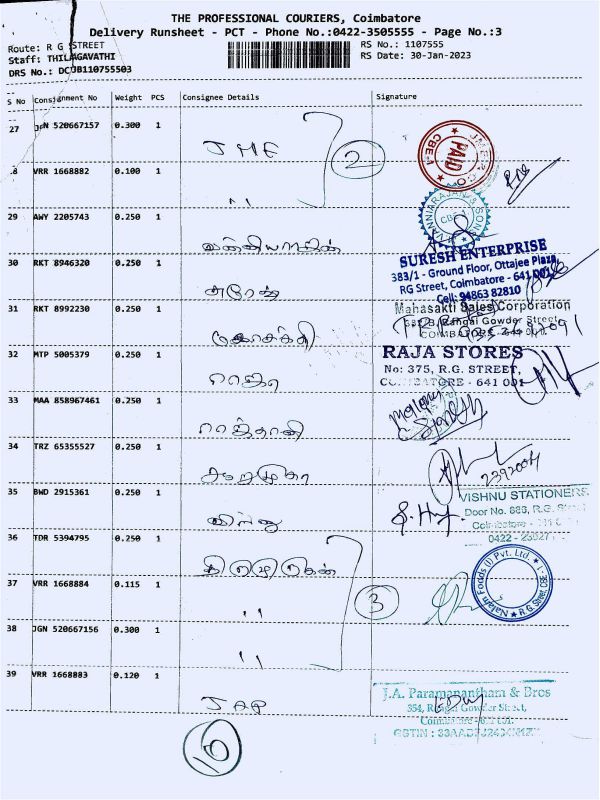 THE PROFESSIONAL COURIERS, Coimbatore
Delivery Runsheet - PCT - Phone No.:0422-3505555 - Page No.:3
Route: R G STREET
Staff: THILAGAVATHI
DRS No.: DCUB110755503
RS No.: 1107555
RS Date: 30-Jan-2023
S No Consignment No Weight PCS Consignee Details Signature
27 JGN 520667157 0.300 1
JME
2
PAID
CBE-1
28 VRR 1668882 0.100 1
,,
29 AWY 2205743 0.250 1
VANNIARAJAN & SONS
CBE-1
30 RKT 8946320 0.250 1
சுரேஷ்
SURESH ENTERPRISE
383/1 - Ground Floor, Ottajee Plaza,
RG Street, Coimbatore - 641 001
Cell: 94863 82810
31 RKT 8992230 0.250 1
மகாசக்தி
Mahasakti Sales Corporation
Rangai Gowder Street
COIMBATORE
32 MTP 5005379 0.250 1
ராஜா
RAJA STORES
No: 375, R.G. STREET,
COIMBATORE - 641 001
33 MAA 858967461 0.250 1
ராஜ்தானி
34 TRZ 65355527 0.250 1
2392004
35 BWD 2915361 0.250 1
விஷ்ணு
VISHNU STATIONERS
Door No. 886, R.G. Street
Coimbatore
0422 -
36 TDR 5394795 0.250 1
37 VRR 1668884 0.115 1
,,
3
Nalam Foods (I) Pvt. Ltd.
R.G. Street, CBE-1
38 JGN 520667156 0.300 1
,,
39 VRR 1668883 0.120 1
JAP
J.A. Paramanantham & Bros
354, Rangai Gowder Street,
Coimbatore - 641 001.
GSTIN :
10